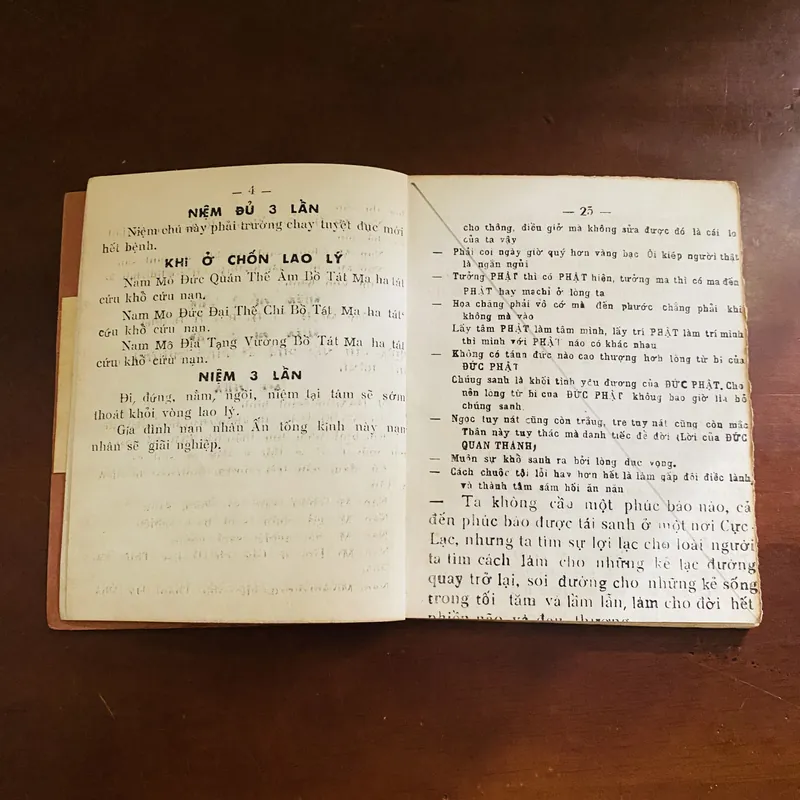 — 4 —
NIỆM ĐỦ 3 LẦN
Niệm chú này phải trường chay tuyệt dục mới
hết bệnh.
KHI Ở CHỐN LAO LÝ
Nam Mô Đức Quán Thế Âm Bồ Tát Ma ha tát
cứu khổ cứu nạn.
Nam Mo Đức Đại Thế Chí Bồ Tát, Ma ha tát
cứu khổ cứu nạn.
Nam Mô Địa Tạng Vương Bồ Tát Ma ha tát
cứu khổ cứu nạn.
NIỆM 3 LẦN
Đi, đứng, nằm, ngồi, niệm tại tâm sẽ sớm
thoát khỏi vòng lao lý.
Gia đình nạn nhân Ấn tống kinh này nạn
nhân sẽ giãi nghiệp.
— 25 —
cho thông, điều giở mà không sửa được đó là cái lo
của ta vậy
— Phải coi ngày giờ quý hơn vàng bạc Ôi kiếp người thật
là ngắn ngủi
— Tưởng PHẬT thì có PHẬT hiện, tưởng ma thì có ma đến
PHẬT hay ma chỉ ở lòng ta
— Họa chẳng phải vô cớ mà đến phước chẳng phải khi
không mà vào
Lấy tâm PHẬT làm tâm mình, lấy trí PHẬT làm trí mình
thì mình với PHẬT nào có khác nhau
— Không có tánh đức nào cao thượng hơn lòng từ bi của
ĐỨC PHẬT
Chúng sanh là khối tình yêu đương của ĐỨC PHẬT. Cho
nên lòng từ bi của ĐỨC PHẬT không bao giờ lìa bỏ
chúng sanh
— Ngọc tuy nát cũng còn trắng, tre tuy nát cũng còn mắc
Thân này tuy thác mà danh tiếc để đời (Lời của ĐỨC
QUAN THÁNH)
— Muôn sự khổ sanh ra bởi lòng dục vọng.
— Cách chuộc tội lỗi hay hơn hết là làm gấp đôi điều lành
và thành tâm sám hối ăn năn
— Ta không cầu một phúc báo nào, cả
đến phúc báo được tái sanh ở một nơi Cực-
Lạc, nhưng ta tìm sự lợi lạc cho loài người
ta tìm cách làm cho những kẻ lạc đường
quay trở lại, soi đường cho những kẻ sống
trong tối tăm và lầm lẫn, làm cho đời hết
phiền não và đau thương